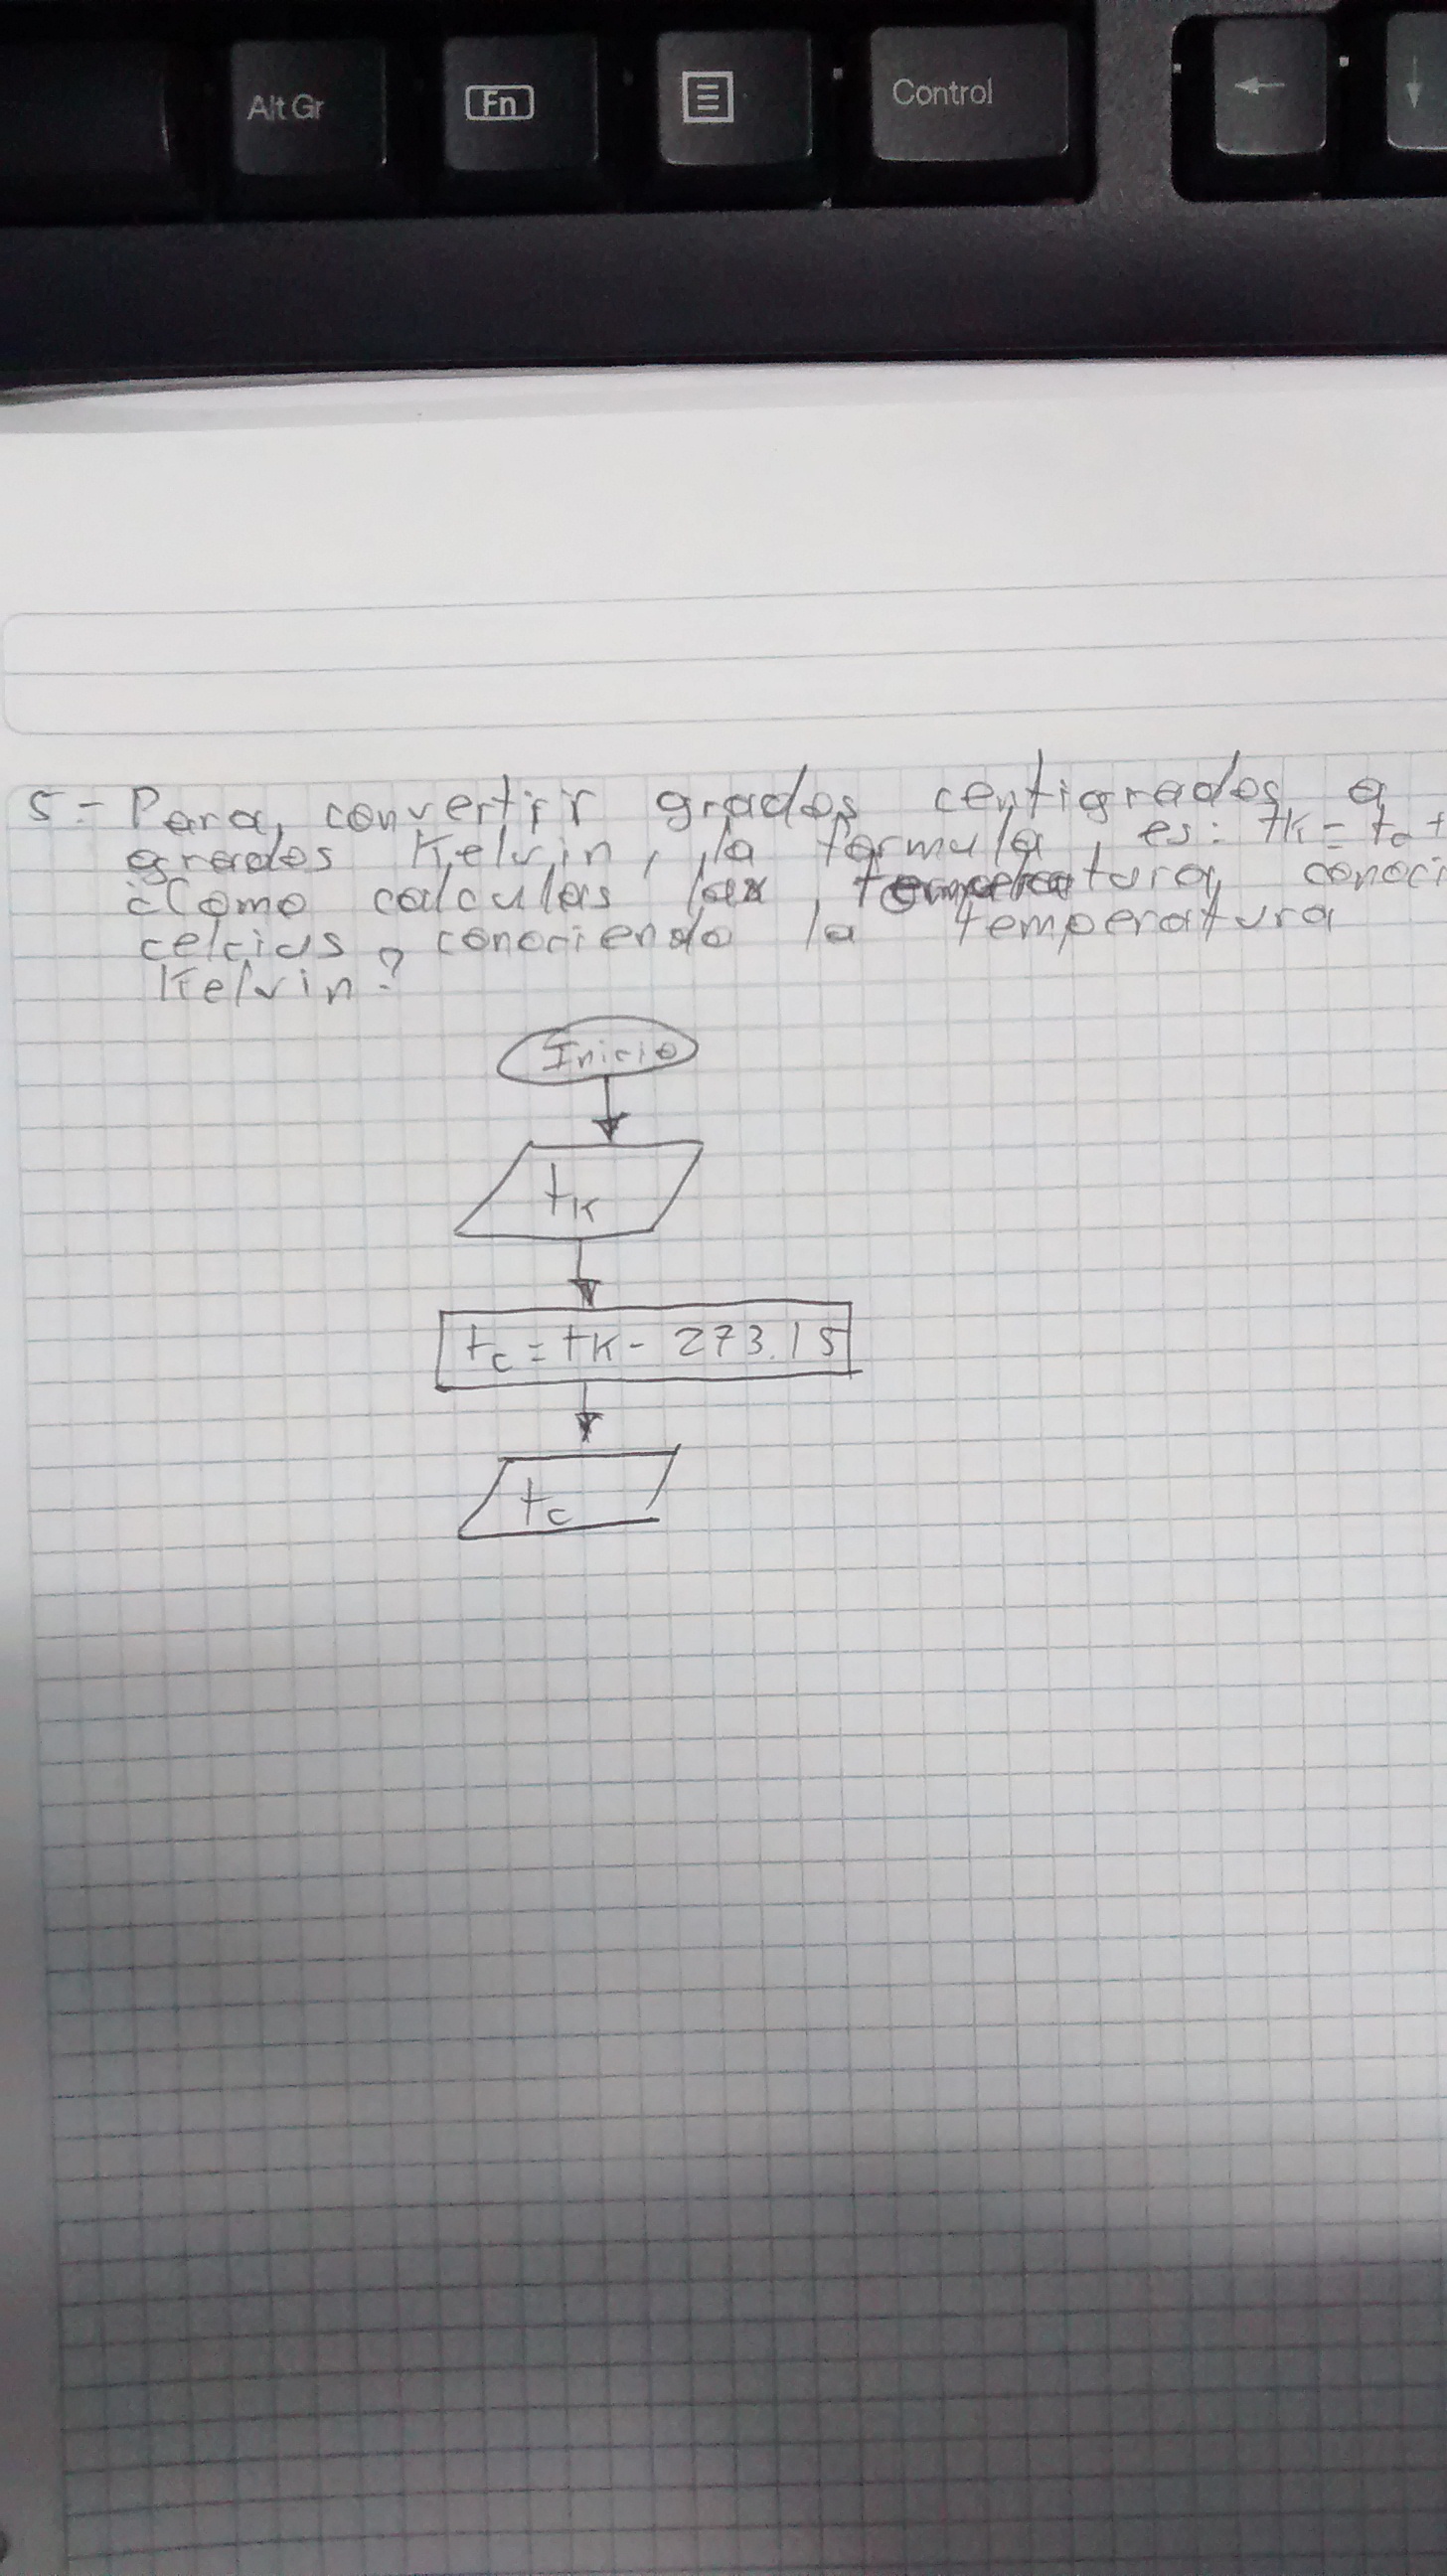 Alt Gr
Fn
Control
5.- Para convertir grados centigrados a
grados Kelvin, la formula es: tK = tc +
¿Como calculas la temperatura conoci
celcius, conociendo la temperatura
Kelvin?
Inicio
tK
tc = tK - 273.15
tc